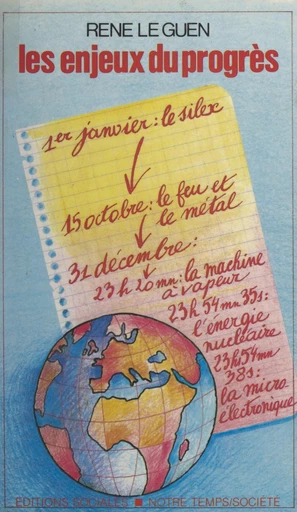 RENE LE GUEN
les enjeux du progrès
1er janvier : le silex
15 octobre : le feu et
le métal
31 décembre :
23h 20mn : la machine
à vapeur
23h 54mn 35s :
l'énergie
nucléaire
23h54mn
38s :
la micro
électronique
EDITIONS SOCIALES ■ NOTRE TEMPS/SOCIÉTÉ